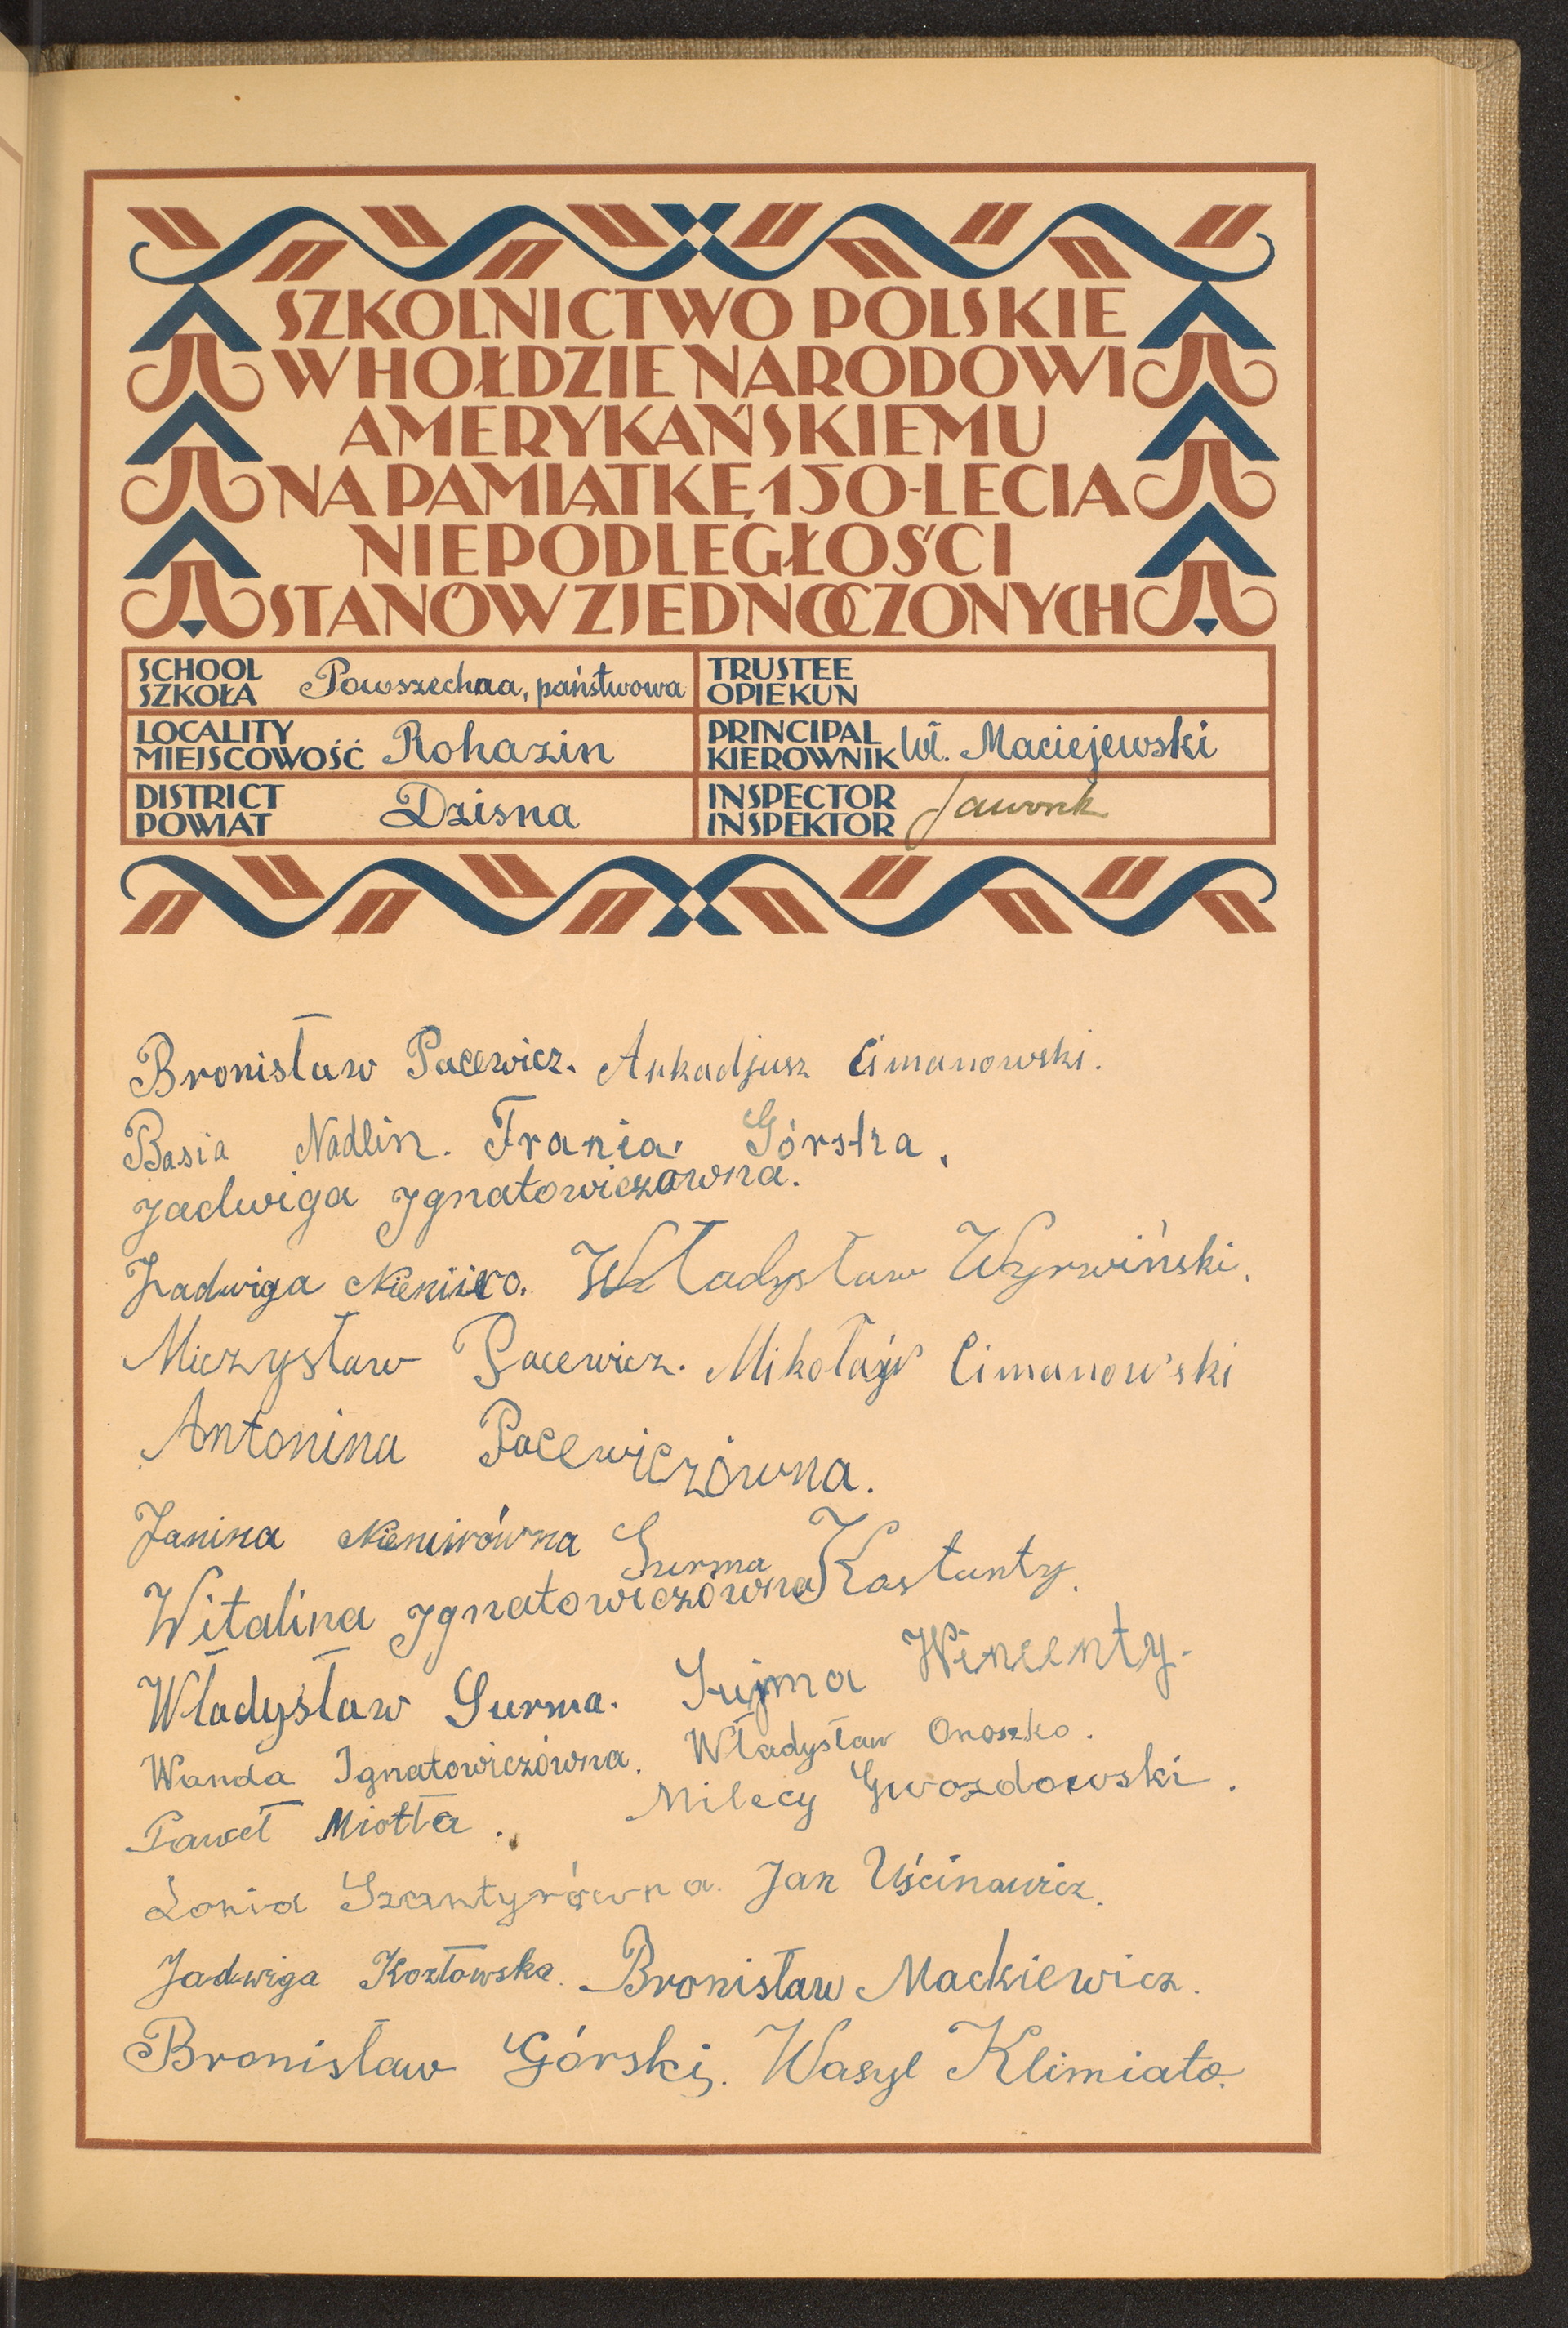 SZKOLNICTWO POLSKIE
W HOŁDZIE NARODOWI
AMERYKAŃSKIEMU
NA PAMIĄTKĘ 150-LECIA
NIEPODLEGŁOŚCI
STANÓW ZJEDNOCZONYCH
SCHOOL
SZKOŁA Powszechna, państwowa
TRUSTEE
OPIEKUN
LOCALITY
MIEJSCOWOŚĆ Rohazin
PRINCIPAL
KIEROWNIK Wł. Maciejewski
DISTRICT
POWIAT Dzisna
INSPECTOR
INSPEKTOR
Bronisław Pacewicz. Arkadjusz Cimanowski.
Basia Nadlin. Frania Górska.
Jadwiga Ignatowiczówna.
Jadwiga Władysław Wyrwiński.
Mieczysław Pacewicz. Mikołaj Cimanowski
Antonina Pacewiczówna.
Janina Niemirówna Surma Kastanty.
Witalina Ignatowiczówna
Władysław Surma. Wincenty.
Wanda Ignatowiczówna. Władysław Onoszko.
Paweł Miotła. Milecy Gwozdowski.
Żonia Szantyrówna. Jan Uścinawicz.
Jadwiga Kozłowska. Bronisław Mackiewicz.
Bronisław Górski. Wasyl Klimiato.